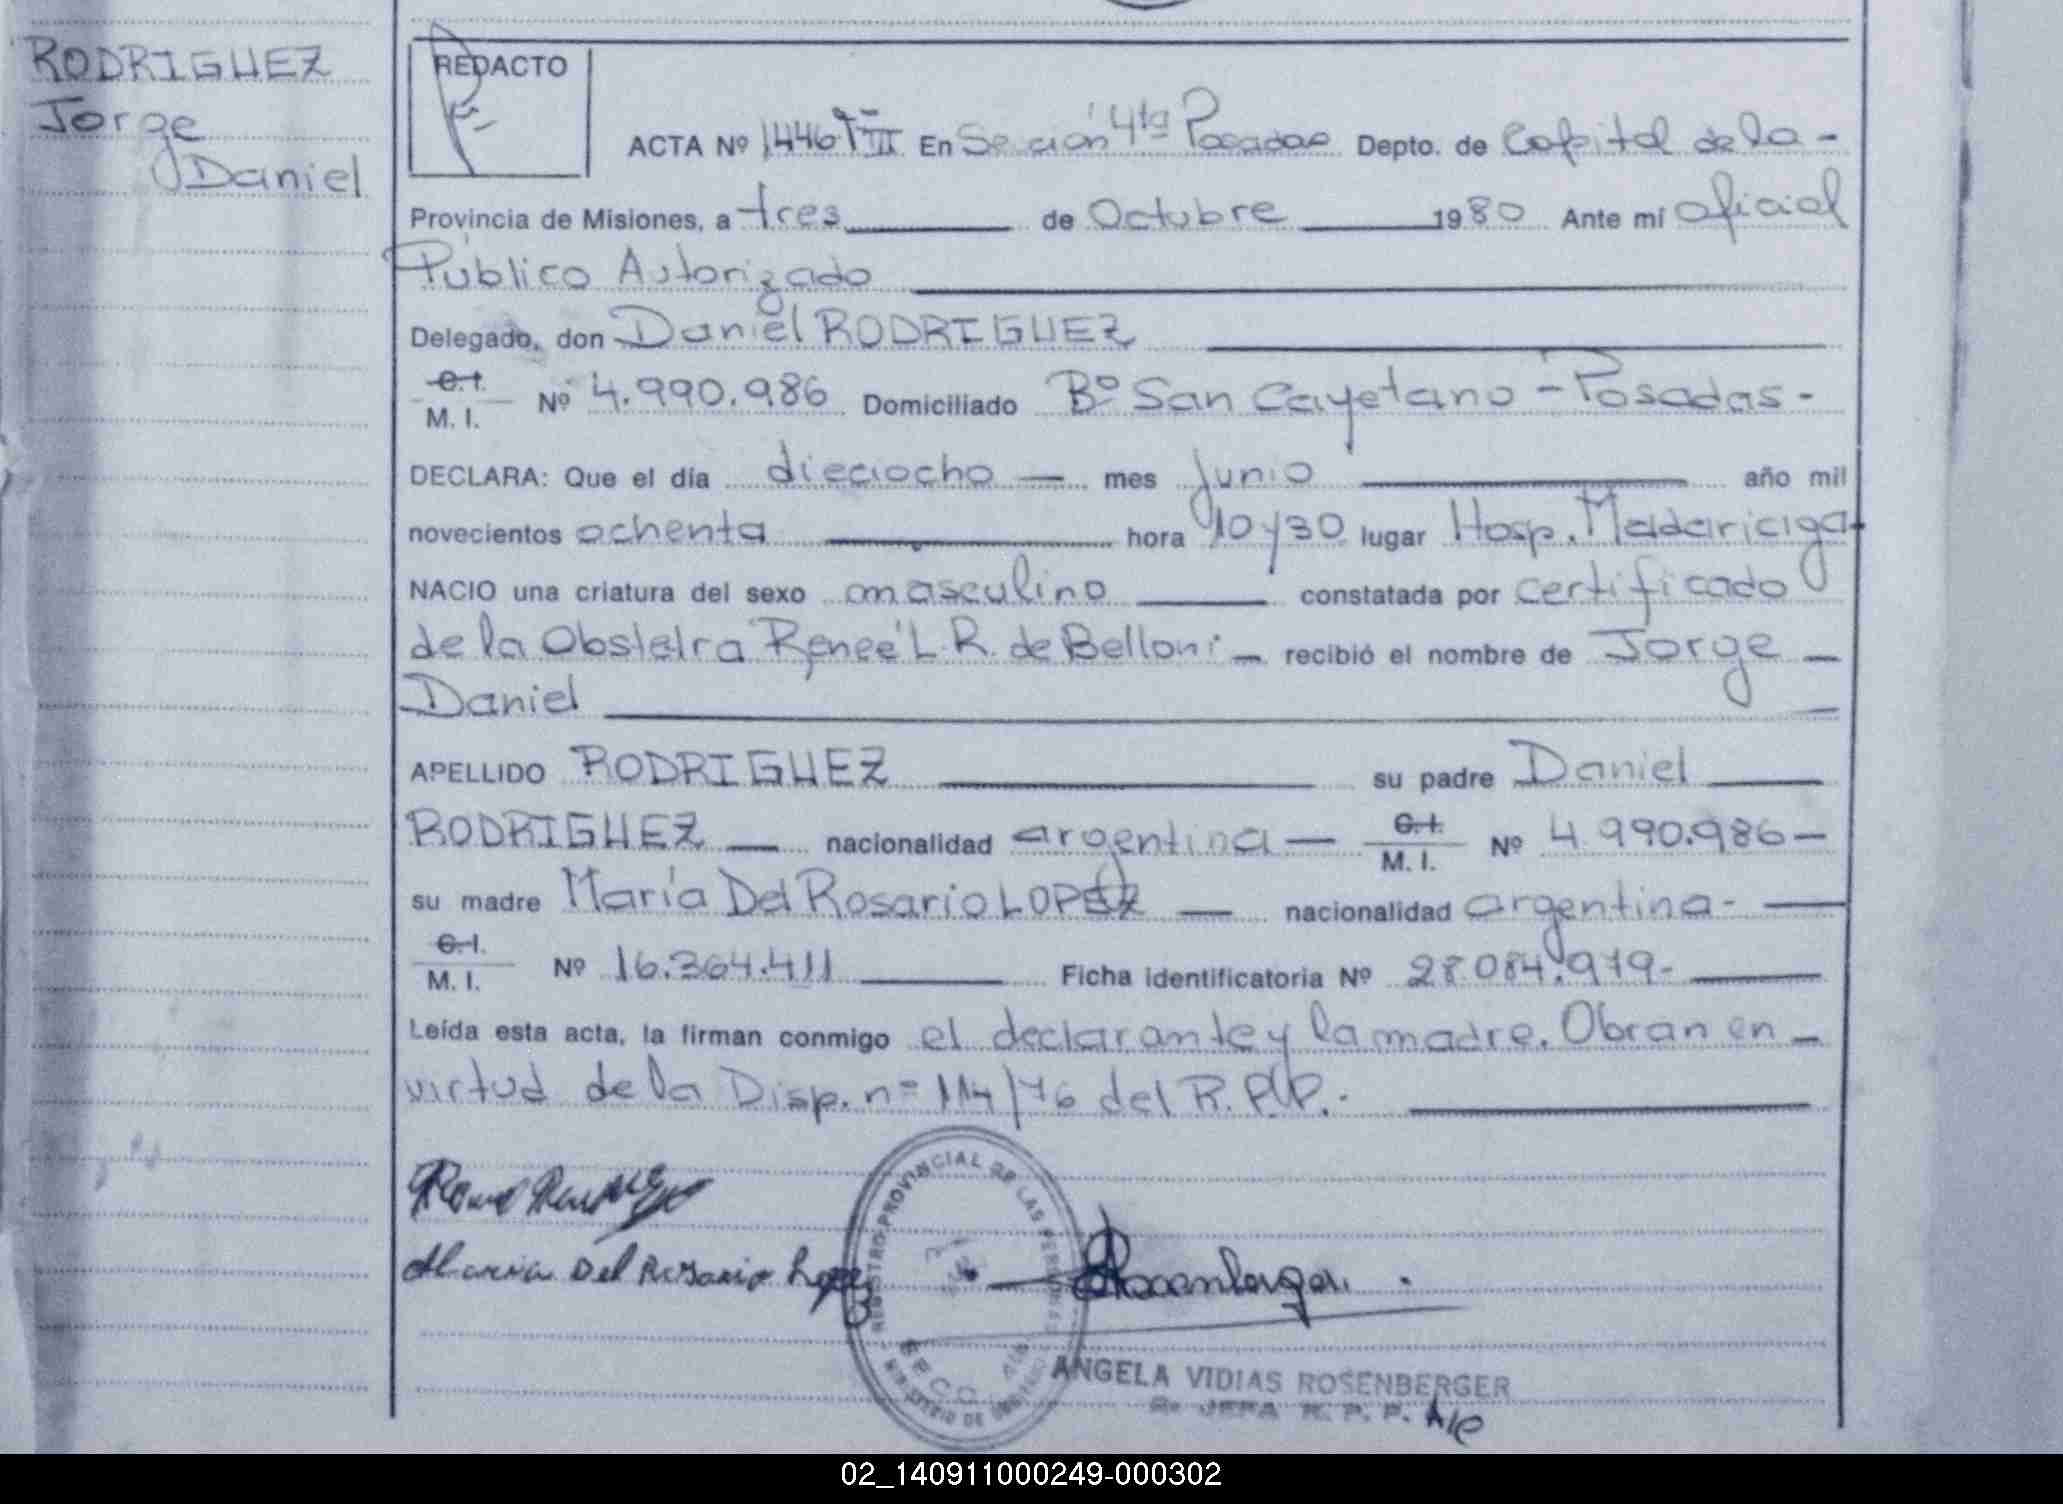 RODRIGUEZ
Jorge
Daniel
REDACTO
ACTA Nº 1446 T III En Sección 4ta Posadas Depto. de Capital de la -
Provincia de Misiones, a tres de Octubre 1980 Ante mí oficial
Público Autorizado
Delegado, don Daniel RODRIGUEZ
C.I.
M. I. Nº 4.990.986 Domiciliado Bº San Cayetano - Posadas -
DECLARA: Que el día dieciocho — mes Junio año mil
novecientos ochenta hora 10 y 30 lugar Hosp. Madariaga
NACIO una criatura del sexo masculino constatada por certificado
de la Obstetra Reneé L. R. de Belloni — recibió el nombre de Jorge —
Daniel
APELLIDO RODRIGUEZ su padre Daniel
RODRIGUEZ — nacionalidad argentina — C.I. M. I. Nº 4.990.986 —
su madre María Del Rosario LOPEZ — nacionalidad argentina -
C.I.
M. I. Nº 16.364.411 Ficha identificatoria Nº 28.084.979 -
Leída esta acta, la firman conmigo el declarante y la madre. Obran en —
virtud de la Disp. nº 114/76 del R.P.P. -
Maria Del Rosario Lopez
REGISTRO PROVINCIAL DE LAS PERSONAS
ANGELA VIDIAS ROSENBERGER
JEFA R. P. P.
02_140911000249-000302